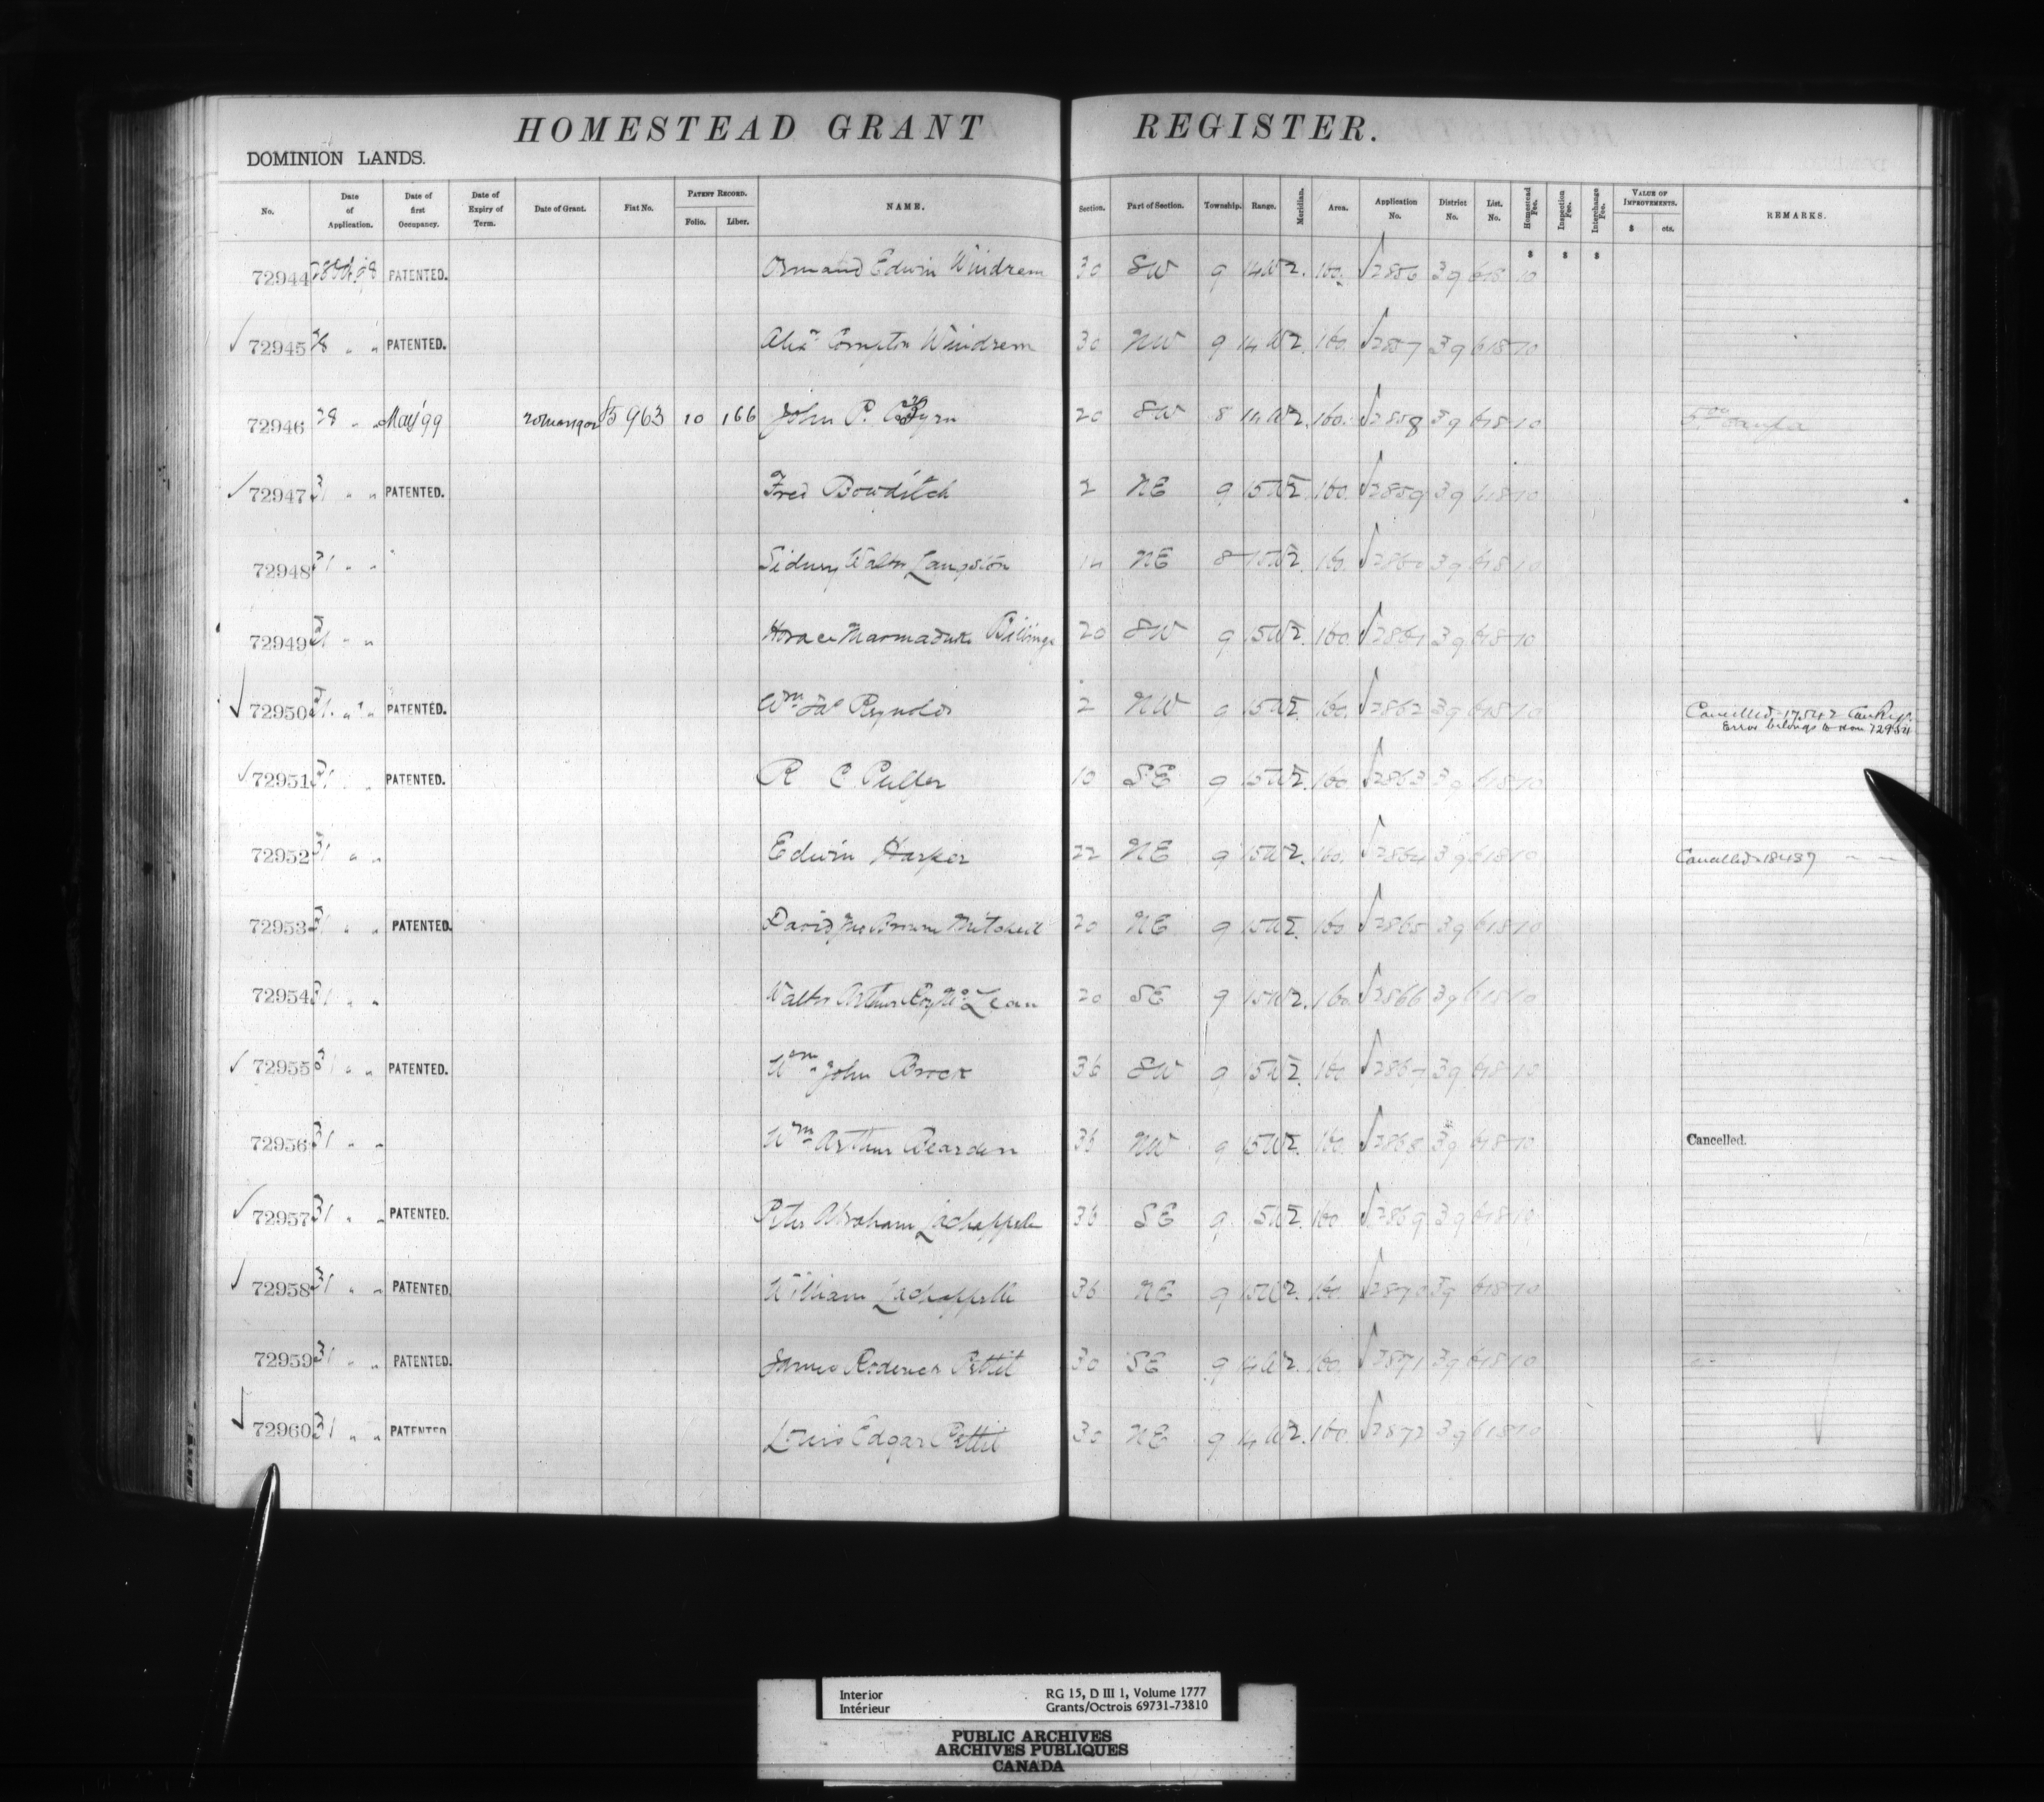 HOMESTEAD GRANT REGISTER.
DOMINION LANDS.
No. Date of Application. Date of first Occupancy. Date of Expiry of Term. Date of Grant. Fiat No. PATENT RECORD. Folio. Liber. NAME. Section. Part of Section. Township. Range. Meridian. Area. Application No. District No. List. No. Homestead Fee. Inspection Fee. Interchange Fee. VALUE OF IMPROVEMENTS. $ cts. REMARKS.
$ $ $
72944 28 98 PATENTED. Ormand Edwin Windrem 30 SW 9 14 W 2. 160. 2856 39 618 10
72945 28 " " PATENTED. Compton Windrem 30 NW 9 14 W 2. 160. 2857 39 618 10
72946 28 " " May '99 85963 10 166 John P. 20 SW 8 14 W 2. 160. 2858 39 618 10
72947 31 " " PATENTED. Fred Bowditch 2 NE 9 15 W 2. 160. 2859 39 618 10
72948 31 " " Sidney Walter Langston 14 NE 8 15 W 2. 160. 2860 39 618 10
72949 31 " " Horace Marmaduke Billings 20 SW 9 15 W 2. 160. 2861 39 618 10
72950 31. " " PATENTED. Wm Jas Reynolds 2 NW 9 15 W 2. 160. 2862 39 618 10 Cancelled 17542
Error belongs to 72954
72951 31 " " PATENTED. R C Pulfer 10 SE 9 15 W 2. 160 2863 39 618 10
72952 31 " " Edwin Harper 22 NE 9 15 W 2. 160. 2864 39 618 10 Cancelled 18437 " "
72953 31 " " PATENTED. David Brown Mitchell 20 NE 9 15 W 2. 160 2865 39 618 10
72954 31 " " Walter Arthur Roy McLean 20 SE 9 15 W 2. 160 2866 39 618 10
72955 31 " " PATENTED. Wm John Brock 36 SW 9 15 W 2. 160 2867 39 618 10
72956 31 " " Wm Arthur Bearden 36 NW 9 15 W 2. 160. 2868 39 618 10 Cancelled.
72957 31 " " PATENTED. Peter Abraham Lachappelle 36 SE 9 15 W 2. 160 2869 39 618 10
72958 31 " " PATENTED. William Lachappelle 36 NE 9 15 W 2. 160. 2870 39 618 10
72959 31 " " PATENTED. James Roderick Pettit 30 SE 9 14 W 2. 160. 2871 39 618 10
72960 31 " " PATENTED Louis Edgar Pettit 30 NE 9 14 W 2. 160. 2872 39 618 10
Interior RG 15, D III 1, Volume 1777
Intérieur Grants/Octrois 69731-73810
PUBLIC ARCHIVES
ARCHIVES PUBLIQUES
CANADA